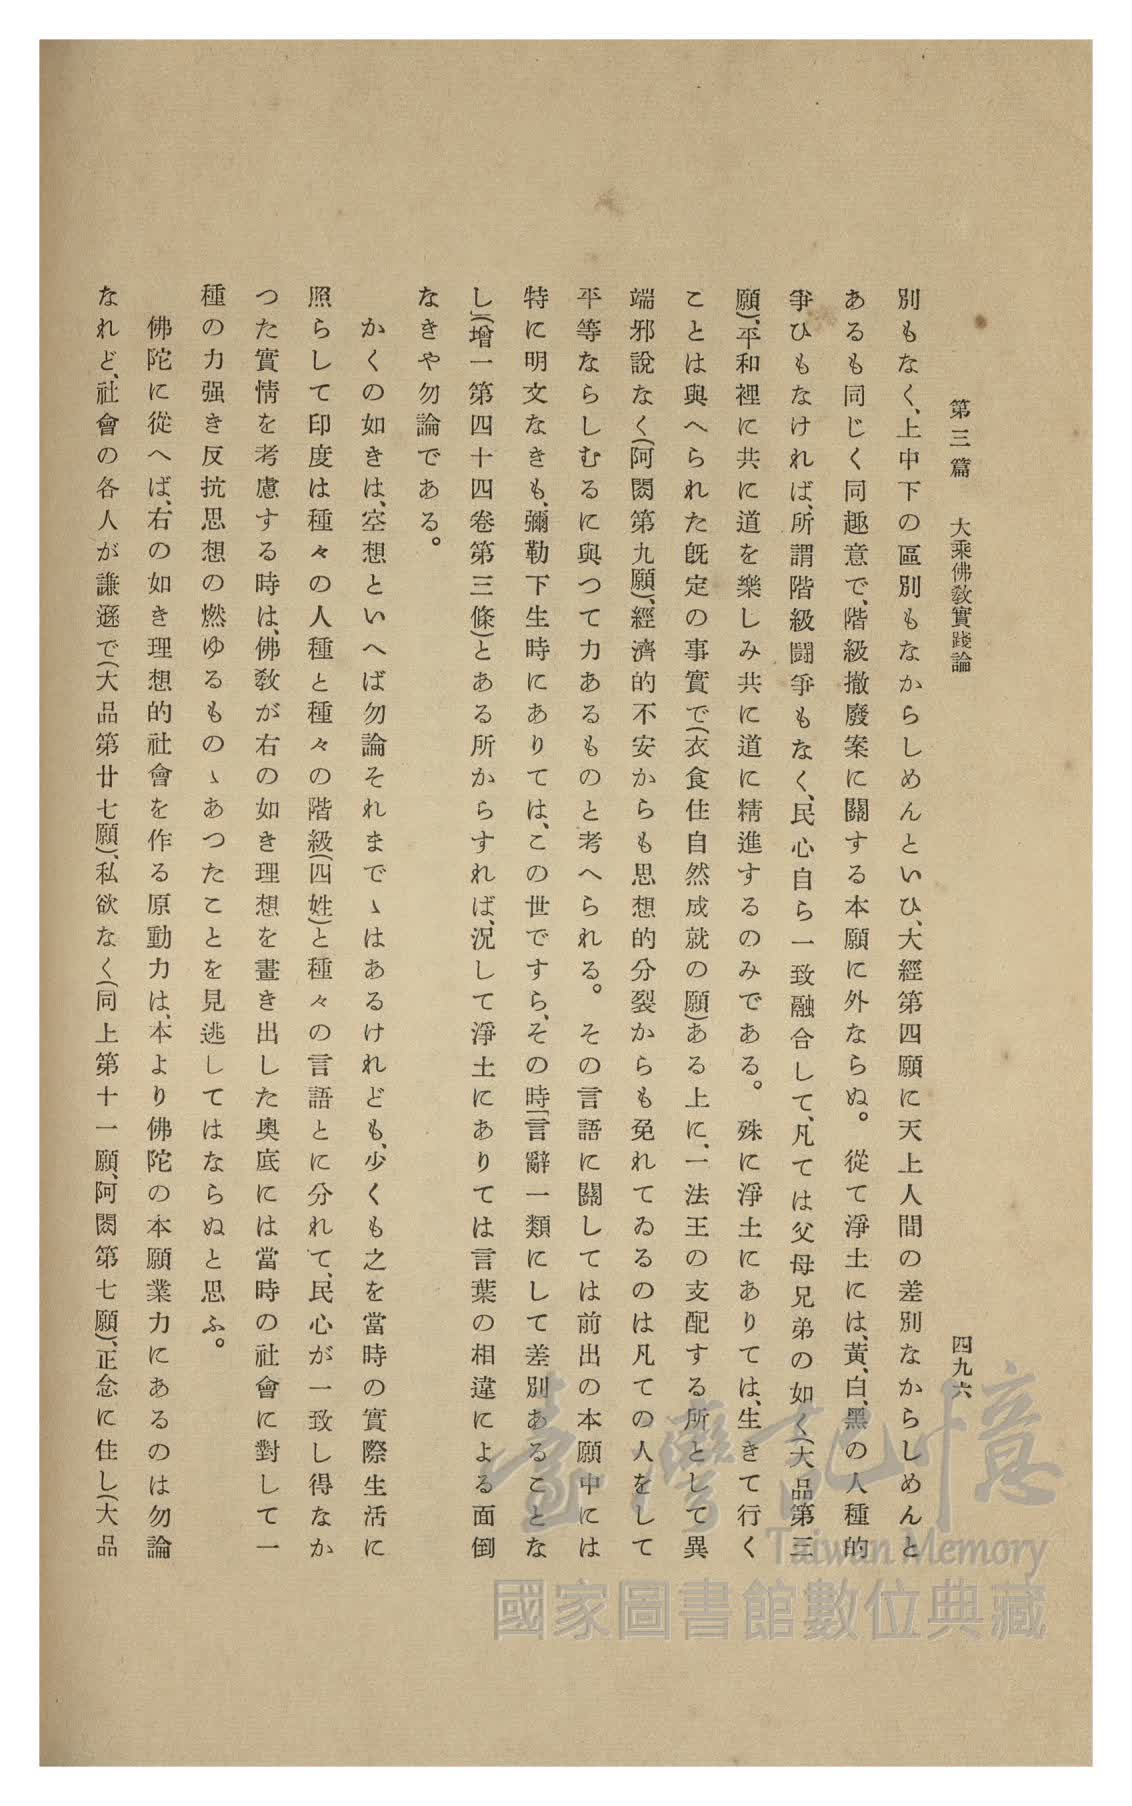 第三篇　大乘佛敎實踐論　四九六
別もなく、上中下の區別もなからしめんといひ、大經第四願に天上人間の差別なからしめんと
あるも同じく同趣意で、階級撤廢案に關する本願に外ならぬ。從て淨土には、黃、白、黑の人種的
爭ひもなければ、所謂階級鬪爭もなく、民心自ら一致融合して、凡ては父母兄弟の如く(大品第三
願)、平和裡に共に道を樂しみ共に道に精進するのみである。殊に淨土にありては、生きて行く
ことは與へられた旣定の事實で(衣食住自然成就の願)ある上に、一法王の支配する所として異
端邪說なく(阿閦第九願)、經濟的不安からも思想的分裂からも免れてゐるのは凡ての人をして
平等ならしむるに與つて力あるものと考へられる。その言語に關しては前出の本願中には
特に明文なきも、彌勒下生時にありては、この世ですら、その時「言辭一類にして差別あることな
し」(增一第四十四卷第三條)とある所からすれば、況して淨土にありては言葉の相違による面倒
なきや勿論である。
かくの如きは、空想といへば勿論それまでゝはあるけれども、少くも之を當時の實際生活に
照らして印度は種々の人種と種々の階級(四姓)と種々の言語とに分れて、民心が一致し得なか
つた實情を考慮する時は、佛敎が右の如き理想を畫き出した奧底には當時の社會に對して一
種の力强き反抗思想の燃ゆるものゝあつたことを見逃してはならぬと思ふ。
佛陀に從へば、右の如き理想的社會を作る原動力は、本より佛陀の本願業力にあるのは勿論
なれど、社會の各人が謙遜で(大品第廿七願)、私欲なく(同上第十一願、阿閦第七願)、正念に住し(大品
臺灣記憶
Taiwan Memory
國家圖書館數位典藏